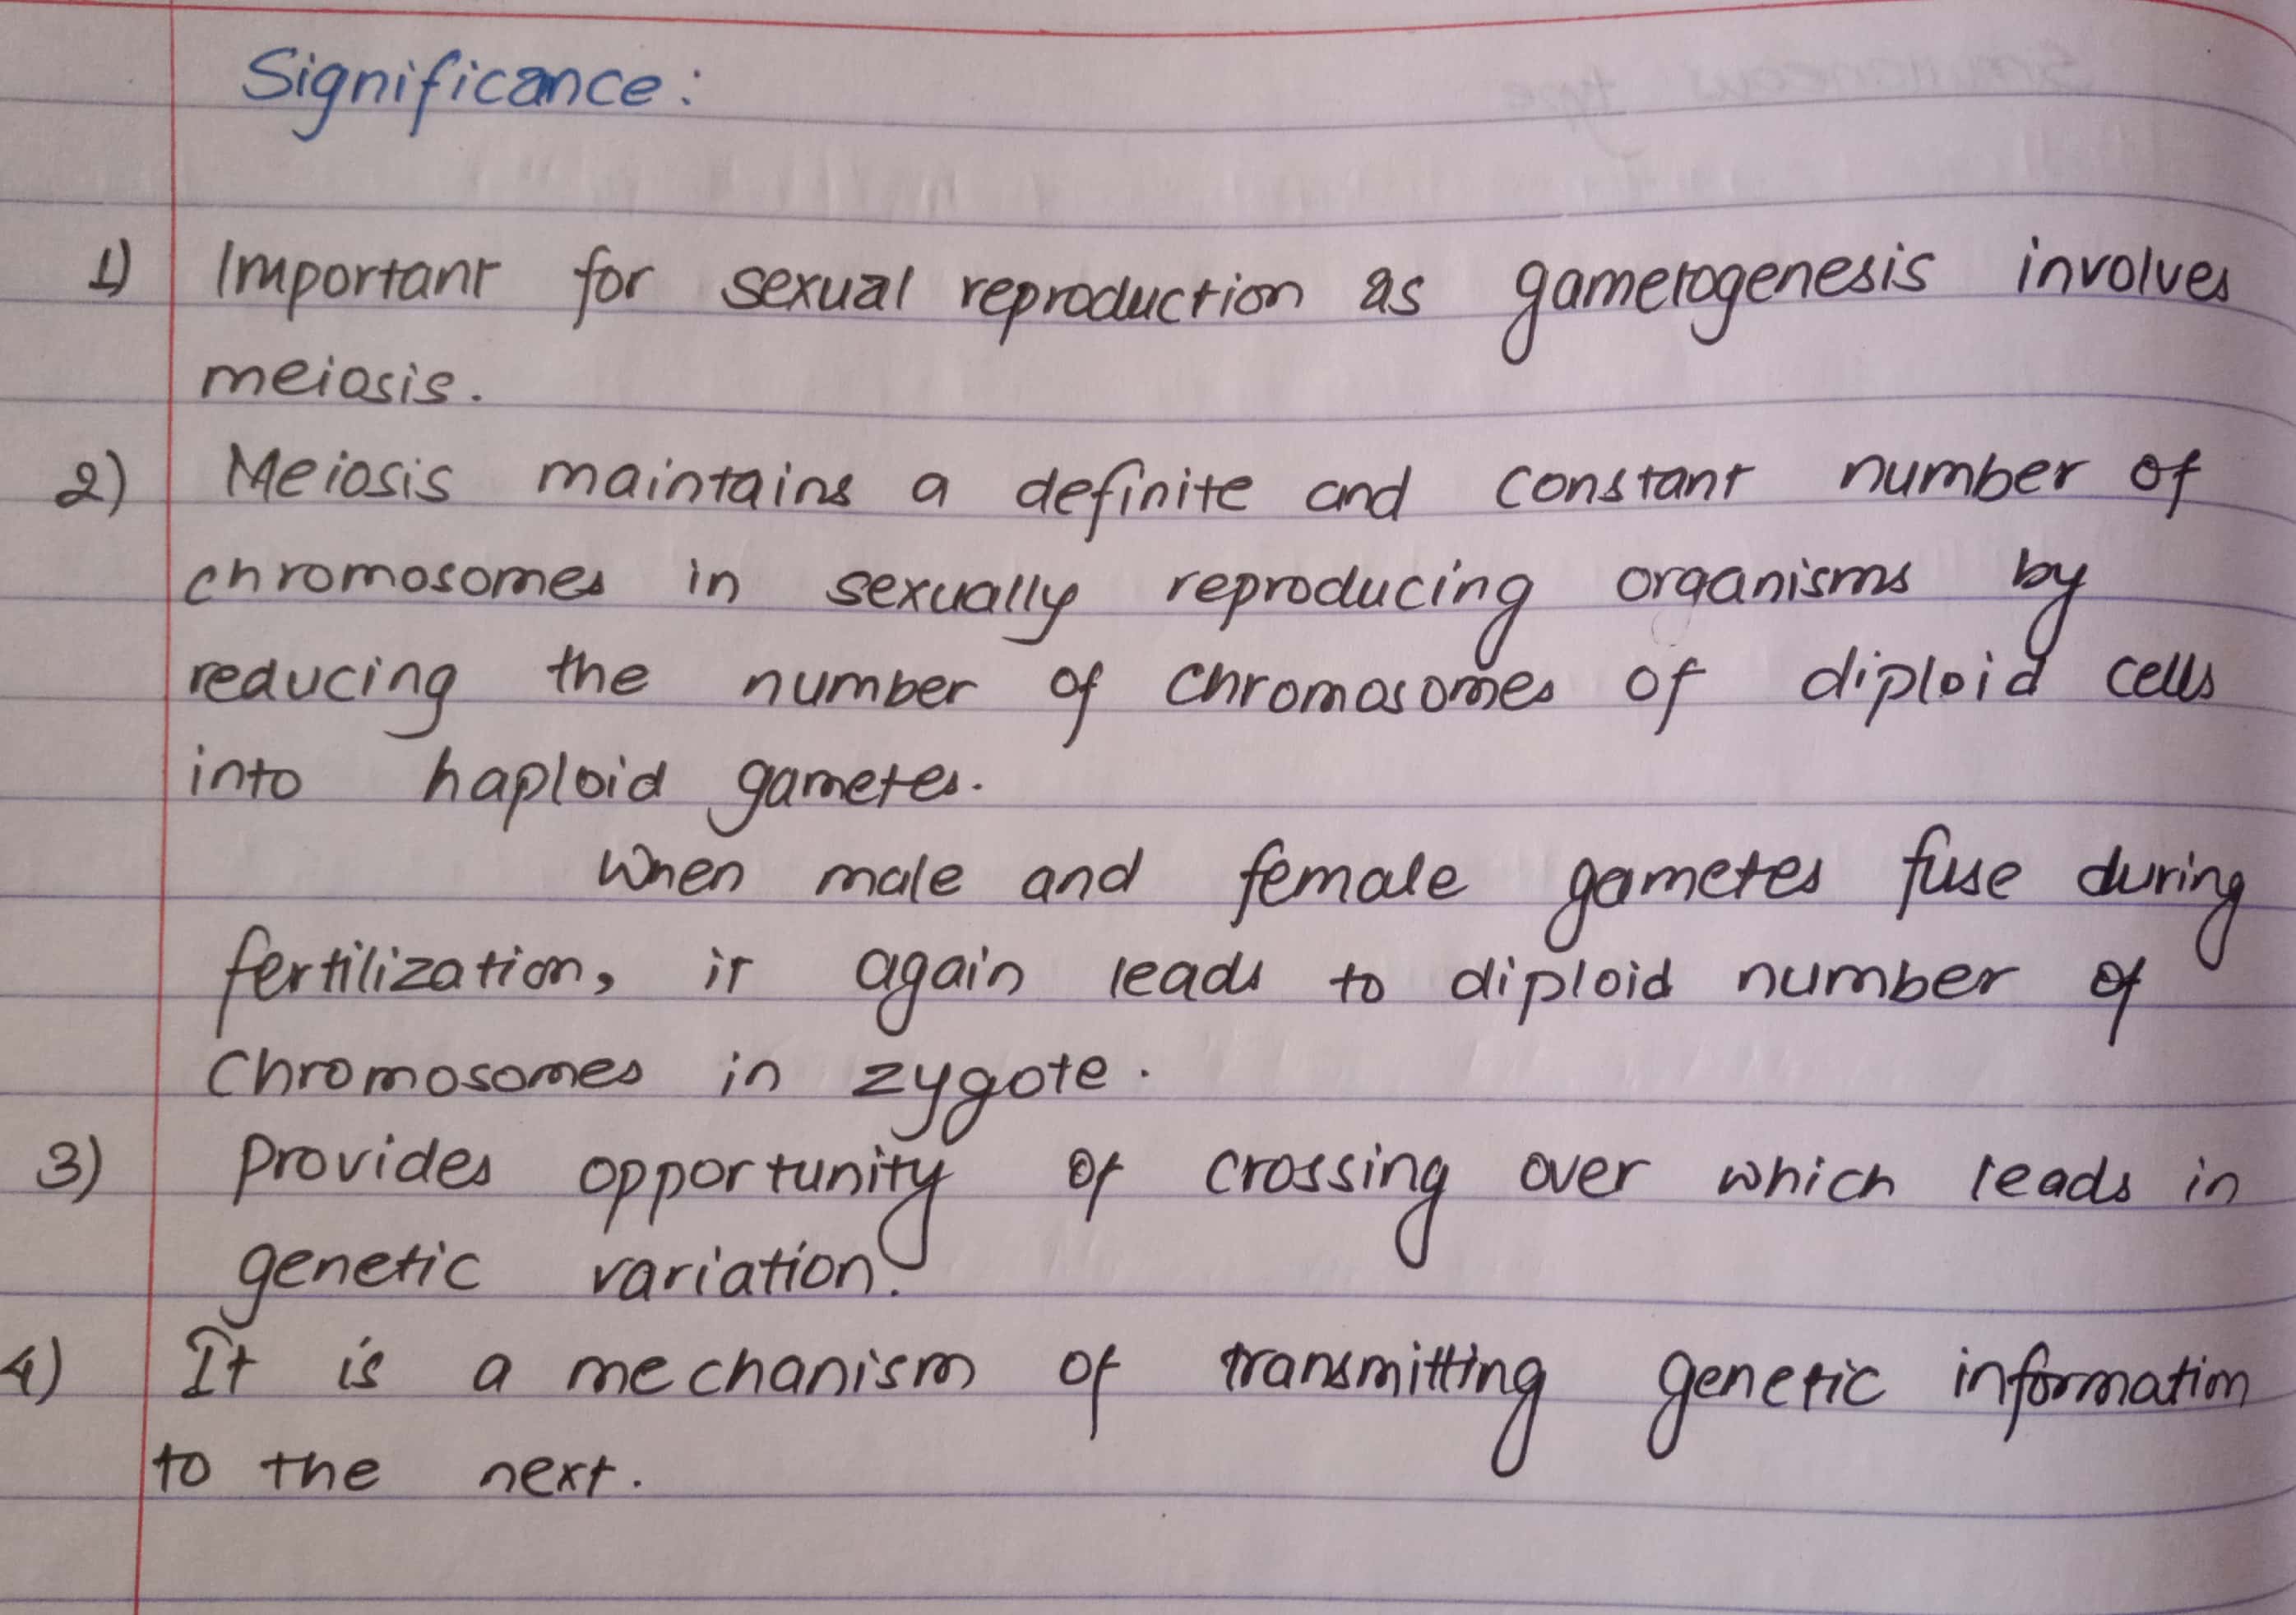 Significance:
1) Important for sexual reproduction as gametogenesis involves
meiosis.
2) Meiosis maintains a definite and constant number of
chromosomes in sexually reproducing organisms by
reducing the number of chromosomes of diploid cells
into haploid gametes.
When male and female gametes fuse during
fertilization, it again leads to diploid number of
chromosomes in zygote.
3) Provides opportunity of crossing over which leads in
genetic variation.
4) It is a mechanism of transmitting genetic information
to the next.